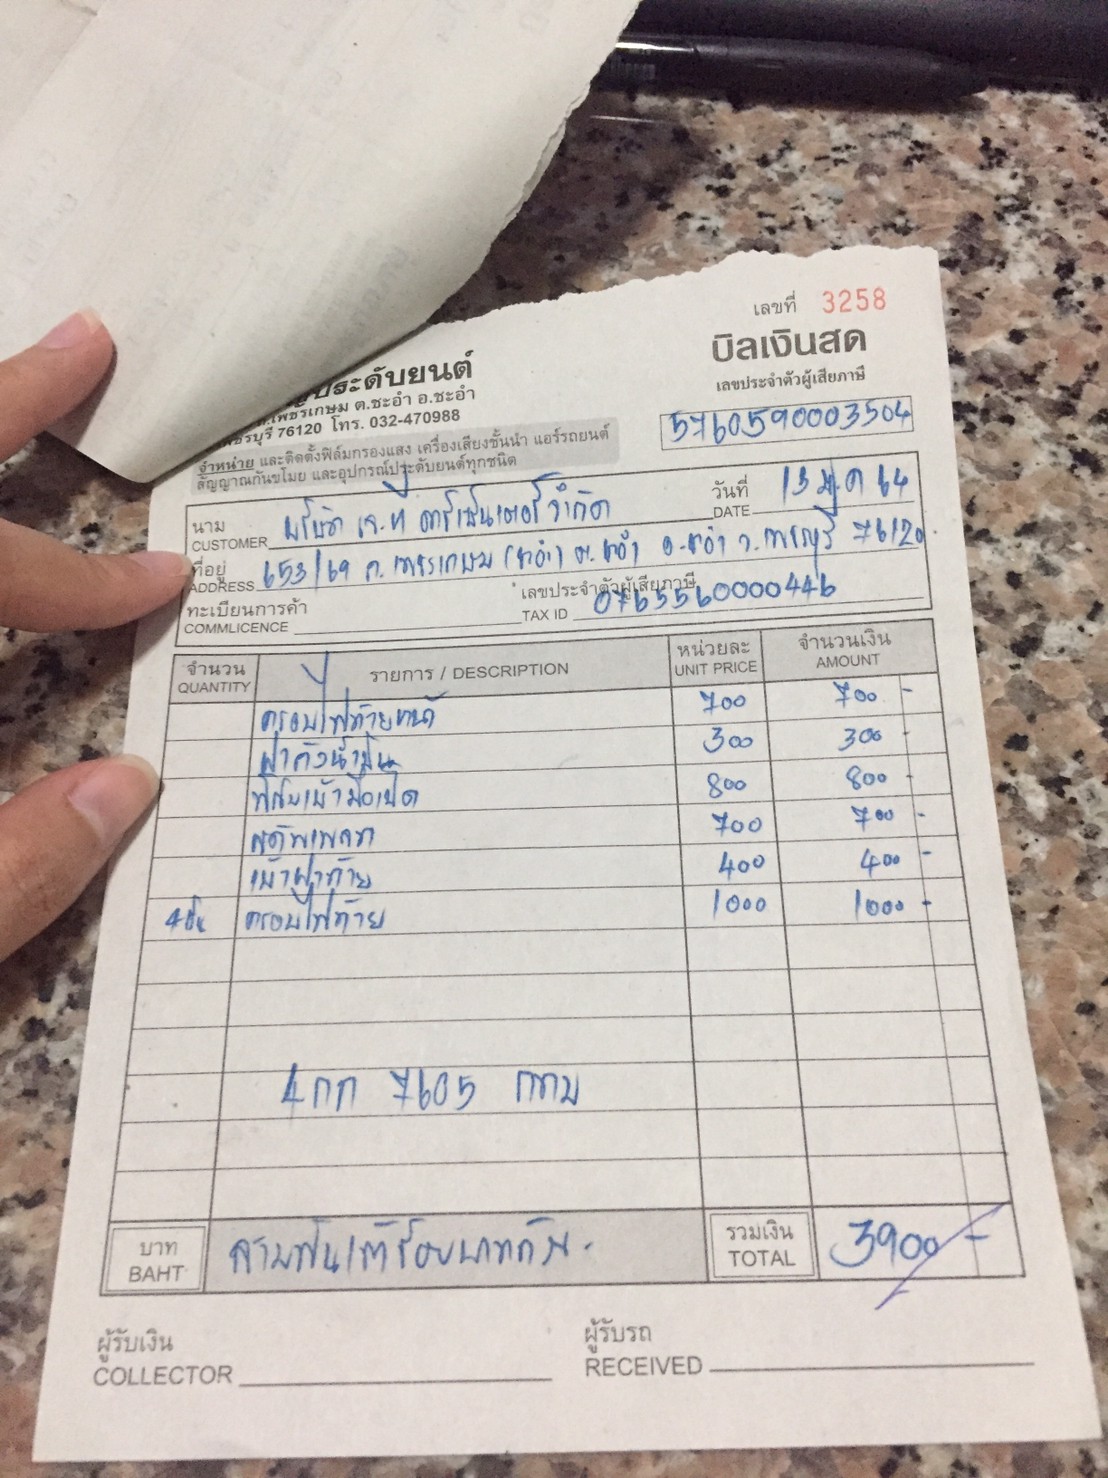 เลขที่ 3258
บิลเงินสด
เลขประจำตัวผู้เสียภาษี
5760590003504
ประดับยนต์
เพชรเกษม ต.ชะอำ อ.ชะอำ
เพชรบุรี 76120 โทร. 032-470988
จำหน่าย และติดตั้งฟิล์มกรองแสง เครื่องเสียงชั้นนำ แอร์รถยนต์
สัญญาณกันขโมย และอุปกรณ์ประดับยนต์ทุกชนิด
นาม บริษัท เจ.ที คาร์เซ็นเตอร์ จำกัด วันที่ 13 มี.ค 64
CUSTOMER DATE
ที่อยู่ 653/69 ถ.เพชรเกษม (ชะอำ) ต.ชะอำ อ.ชะอำ จ.เพชรบุรี 76120
ADDRESS
ทะเบียนการค้า เลขประจำตัวผู้เสียภาษี
COMMLICENCE TAX ID 0765560000446
จำนวน รายการ / DESCRIPTION หน่วยละ จำนวนเงิน
QUANTITY UNIT PRICE AMOUNT
ครอบไฟท้าย 700 700 -
ฝาถังน้ำมัน 300 300 -
เบ้ามือเปิด 800 800 -
700 700 -
เบ้าฝาท้าย 400 400 -
4ชิ้น ครอบไฟท้าย 1000 1000 -
4กก 7605 กทม
บาท สามพันเก้าร้อยบาทถ้วน - รวมเงิน 3900 -
BAHT TOTAL
ผู้รับเงิน ผู้รับรถ
COLLECTOR RECEIVED